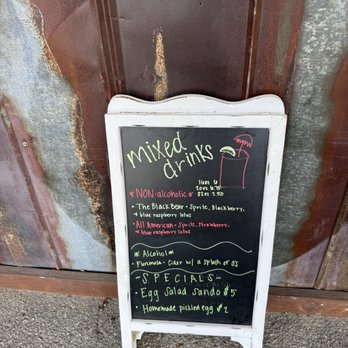 mixed
drinks
*NON-alcoholic*
• The Black Bear - Sprite, Blackberry,
& blue raspberry lotus
• All American - Sprite, Strawberry,
& blue raspberry lotus
*Alcohol*
• Funmosa - Cider w/ a splash of OJ
~SPECIALS~
• Egg Salad Sando $5
• Homemade pickled egg $2